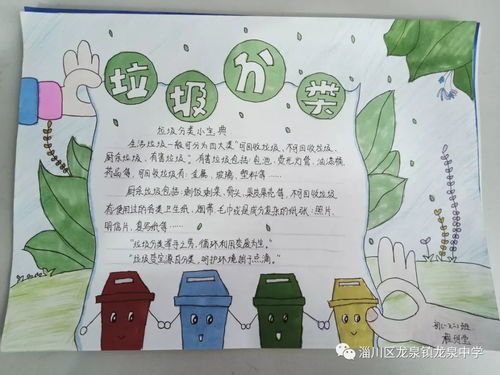 垃圾分类
垃圾分类小宝典
生活垃圾一般可分为四大类"可回收垃圾、不可回收垃圾、
厨余垃圾、有害垃圾。"有害垃圾包括:电池、荧光灯管、油漆桶
药品等,可回收垃圾有:金属、玻璃、塑料等……
厨余垃圾包括:剩饭剩菜、骨头、菜皮果壳等,不可回收垃圾
有使用过的各类卫生纸、烟蒂、毛巾或是成分复杂的纸张、照片、
明信片、复写纸等……
"垃圾分类举手之劳,循环利用变废为宝。"
"垃圾荧定源自分类,呵护环境始于点滴。"
初一班
淄川区龙泉镇龙泉中学